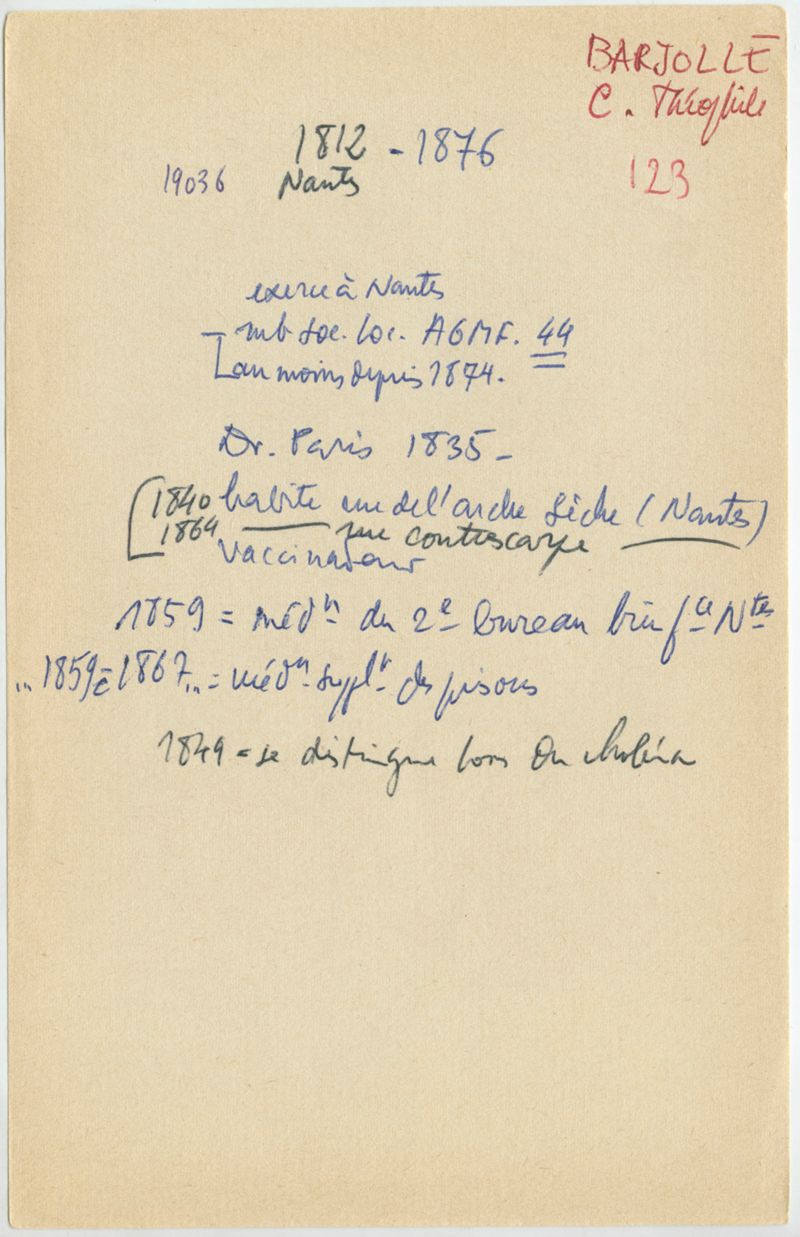 BARJOLLE
C. Théophile
123
1812 - 1876
19036 Nantes
exerce à Nantes
- mb soc. loc. AGMF. 44
au moins depuis 1874.
Dr. Paris 1835 -
1840 habite rue de l'arche sèche (Nantes)
1864 — rue contrescarpe —
Vaccinateur
1859 = médn du 2e bureau bienfce Ntes
"1859 à 1867" = médn supplt des prisons
1849 = se distingue lors du choléra